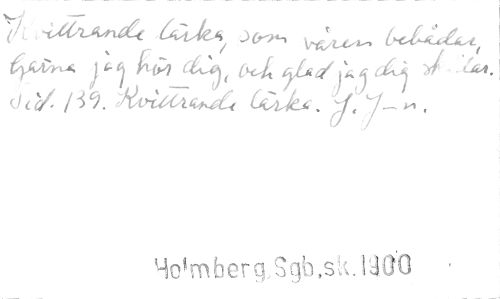 Kvittrande lärka, som våren bebådar,
Gärna jag hör dig, och glad jag dig skådar.
Sid. 139. Kvittrande lärka. J. J-n.
Holmberg, Sgb, sk. 1900